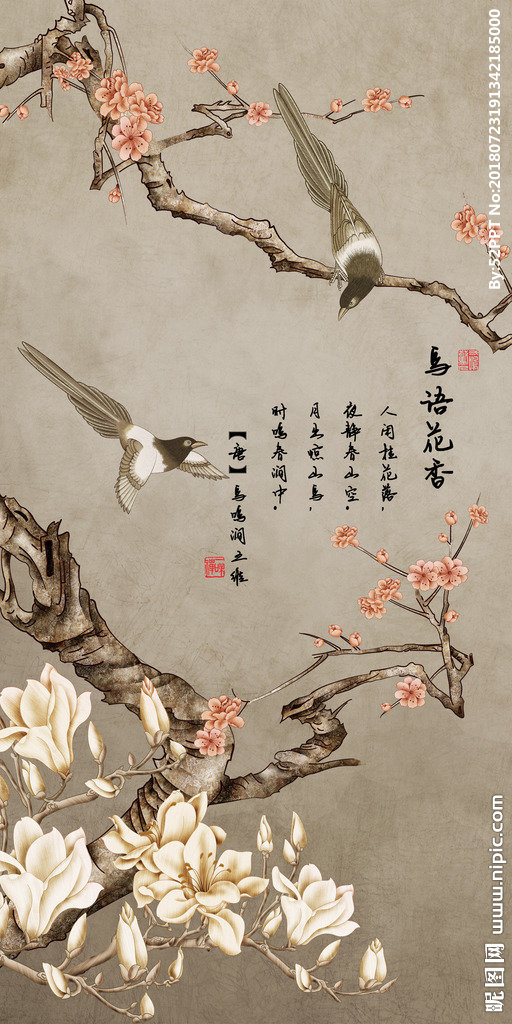 鸟语花香
人闲桂花落，
夜静春山空。
月出惊山鸟，
时鸣春涧中。
【唐】鸟鸣涧王维
By:52PPT No:20180723191342185000
昵图网 www.nipic.com